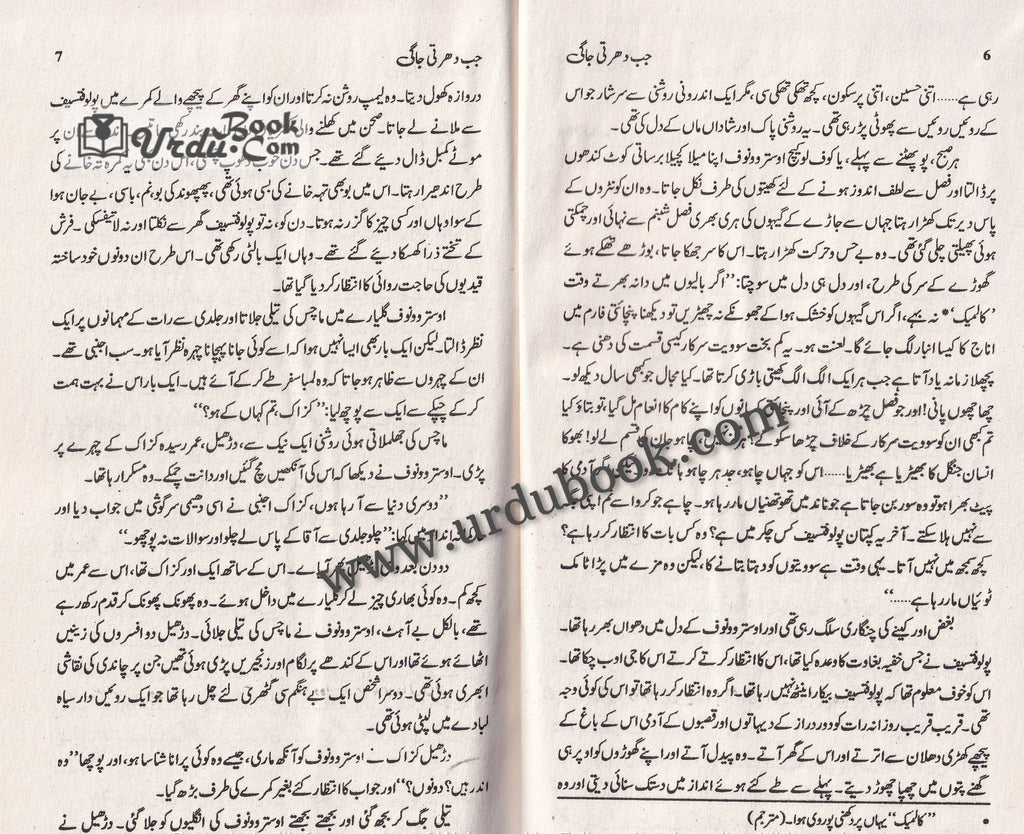 6
جب دھرتی جاگی
رہی ہے..... اتنی حسین، اتنی پرسکون، کچھ تھکی تھکی سی، مگر ایک اندرونی روشنی سے سرشار جو اس
کے روئیں روئیں سے پھوٹی پڑ رہی تھی۔ یہ روشنی پاک اور شاداں ماں کے دل کی تھی۔
ہر صبح، پو پھٹنے سے پہلے، یا کوف لوکیچ اوسترو ونوف اپنا میلا کچیلا برساتی کوٹ کندھوں
پر ڈالتا اور فصل سے لطف اندوز ہونے کے لئے کھیتوں کی طرف نکل جاتا۔ وہ ان کونٹروں کے
پاس دیر تک کھڑا رہتا جہاں سے جاڑے کے گیہوں کی ہری بھری فصل شبنم سے نہائی اور چمکتی
ہوئی پھیلتی چلی گئی تھی۔ وہ بے حس و حرکت کھڑا رہتا۔ اس کا سر جھکا جاتا، بوڑھے تھکے ہوئے
گھوڑے کے سر کی طرح، اور دل ہی دل میں سوچتا: ”اگر بالیوں میں دانہ بھرتے وقت
’کالمیک‘* نہ بہے، اگر اس گیہوں کو خشک ہوا کے جھونکے نہ چھیڑیں تو دیکھنا پنچائتی فارم میں
اناج کا کیسا انبار لگ جائے گا۔ لعنت ہو۔ یہ کم بخت سوویت سرکار کیسی قسمت کی دھنی ہے۔
پچھلا زمانہ یاد آتا ہے جب ہر ایک الگ الگ کھیتی باڑی کرتا تھا۔ کیا مجال جو بھی سال دیکھ لو۔
چھاچھوں پانی! اور جو فصل چڑھ کے آئی اور کسانوں کو اپنے کام کا انعام مل گیا، تو بتاؤ کیا
تم بھی ان کو سوویت سرکار کے خلاف چڑھا سکو گے؟ چاہو جان کو قسم لے لو! بھوکا
انسان جنگل کا بھیڑیا ہے بھیڑیا..... اس کو جہاں چاہو، جدھر چاہو ہانک دو آدمی کا
پیٹ بھرا ہو تو وہ سور بن جاتا ہے جو ناند میں تھوتھنیاں مار رہا ہو۔ چاہے جو کرو اسے تم اپنی جگہ
سے نہیں ہلا سکتے۔ آخر یہ کپتان پولوفتسیف کس چکر میں ہے؟ وہ کس بات کا انتظار کر رہا ہے؟
کچھ سمجھ میں نہیں آتا۔ یہی وقت ہے سوویتوں کو دہتا بتانے کا، لیکن وہ مزے میں پڑا ٹامک
ٹوئیاں مار رہا ہے.....“
بغض اور کینے کی چنگاری سلگ رہی تھی اور اوسترو ونوف کے دل میں دھواں بھر رہا تھا۔
پولوفتسیف نے جس خفیہ بغاوت کا وعدہ کیا تھا، اس کا انتظار کرتے کرتے اس کا جی اوب چکا تھا۔
اس کو خوف معلوم تھا کہ پولوفتسیف بیکار اینٹھ نہیں رہا تھا۔ اگر وہ انتظار کر رہا تھا تو اس کی کوئی وجہ
تھی۔ قریب قریب روزانہ رات کو دور دراز کے دیہاتوں اور قصبوں کے آدمی اس کے باغ کے
پیچھے کھڑی ڈھلان سے اترتے اور اس کے گھر آتے۔ وہ پیدل آتے اور اپنے گھوڑوں کو اوپر ہی
گھنے پتوں میں چھپا چھوڑ دیتے۔ پہلے سے طے کئے ہوئے انداز میں دستک سنائی دیتی اور وہ
* ”کالمیک“ یہاں پر دکھنی پوروی ہوا۔ (مترجم)
جب دھرتی جاگی
7
دروازہ کھول دیتا۔ وہ لیمپ روشن نہ کرتا اور ان کو اپنے گھر کے پیچھے والے کمرے میں پولوفتسیف
سے ملانے لے جاتا۔ صحن میں کھلنے والی ان پر
Urdu Book .Com
موٹے کمبل ڈال دیئے گئے تھے۔ جس دن خوب دھوپ اس دن بھی یہ کمرہ تہ خانے کی
طرح اندھیرا رہتا۔ اس میں بو بھی تہہ خانے کی بسی ہوئی تھی، پھپھوند کی بو، نم، باسی، بے جان ہوا
کے سوا وہاں اور کسی چیز کا گزر نہ ہوتا۔ دن کو، نہ تو پولوفتسیف گھر سے نکلتا اور نہ لاتیفسکی۔ فرش
کے تختے ذرا کھسکا دیئے گئے تھے۔ وہاں ایک بالٹی رکھی تھی۔ اس طرح ان دونوں خود ساختہ
قیدیوں کی حاجت روائی کا انتظار کر دیا گیا تھا۔
اوسترو ونوف گلیارے میں ماچس کی تیلی جلاتا اور جلدی سے رات کے مہمانوں پر ایک
نظر ڈالتا۔ لیکن ایک بار بھی ایسا نہیں ہوا کہ اسے کوئی جانا پہچانا چہرہ نظر آیا ہو۔ سب اجنبی تھے۔
ان کے چہروں سے ظاہر ہو جاتا کہ وہ لمبا سفر طے کر کے آئے ہیں۔ ایک بار اس نے بہت ہمت
کر کے چپکے سے ایک سے پوچھ لیا: ”کزاک، تم کہاں کے ہو؟“
ماچس کی جھلملاتی ہوئی روشنی ایک نیک سے، دڑھیل، عمر رسیدہ کزاک کے چہرے پر
پڑی۔ اوسترو ونوف نے دیکھا کہ اس کی آنکھیں مچ گئیں اور دانت چمکے۔ وہ مسکرا رہا تھا۔
”دوسری دنیا سے آ رہا ہوں، کزاک اجنبی نے اسی دھیمی سرگوشی میں جواب دیا اور
انداز میں کہا: ”چلو جلدی سے آقا کے پاس لے چلو اور سوالات نہ پوچھو۔“
دو دن بعد وہی دڑھیل پھر آیا۔ اس کے ساتھ ایک اور کزاک تھا، اس سے عمر میں
کچھ کم۔ وہ کوئی بھاری چیز لے کر گلیارے میں داخل ہوئے۔ وہ پھونک پھونک کر قدم رکھ رہے
تھے، بالکل بے آہٹ، اوسترو ونوف نے ماچس کی تیلی جلائی۔ دڑھیل دو افسروں کی زینیں
اٹھائے ہوئے تھا اور اس کے کندھے پر لگام اور زنجیریں پڑی ہوئی تھیں جن پر چاندی کی نقاشی
ابھری ہوئی تھی۔ دوسرا شخص ایک بے ہنگم سی گٹھری لئے چل رہا تھا جو ایک روئیں دار سیاہ
لبادے میں لپٹی ہوئی تھی۔
دڑھیل کزاک نے اوسترو ونوف کو آنکھ ماری، جیسے وہ کوئی پرانا شناسا ہو، اور پوچھا ”وہ
اندر ہیں؟ دونوں؟“ اور جواب کا انتظار کئے بغیر کمرے کی طرف بڑھ گیا۔
تیلی جگ کر بجھ گئی اور بجھتے بجھتے اوسترو ونوف کی انگلیوں کو جلا گئی۔ دڑھیل نے
www.urdubook.com